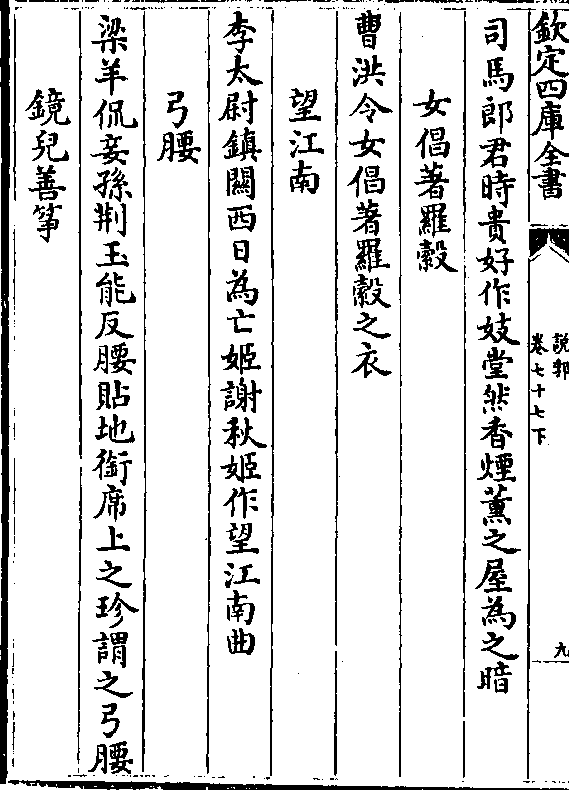 欽定四庫全書
説郛
卷七十七下
九
司馬郎君時貴好作妓堂然香煙薰之屋為之暗
女倡著羅縠
曹洪令女倡著羅縠之衣
望江南
李太尉鎮關西日為亡姬謝秋姬作望江南曲
弓腰
梁羊侃妾孫荆玉能反腰貼地銜席上之珍謂之弓腰
鏡兒善箏